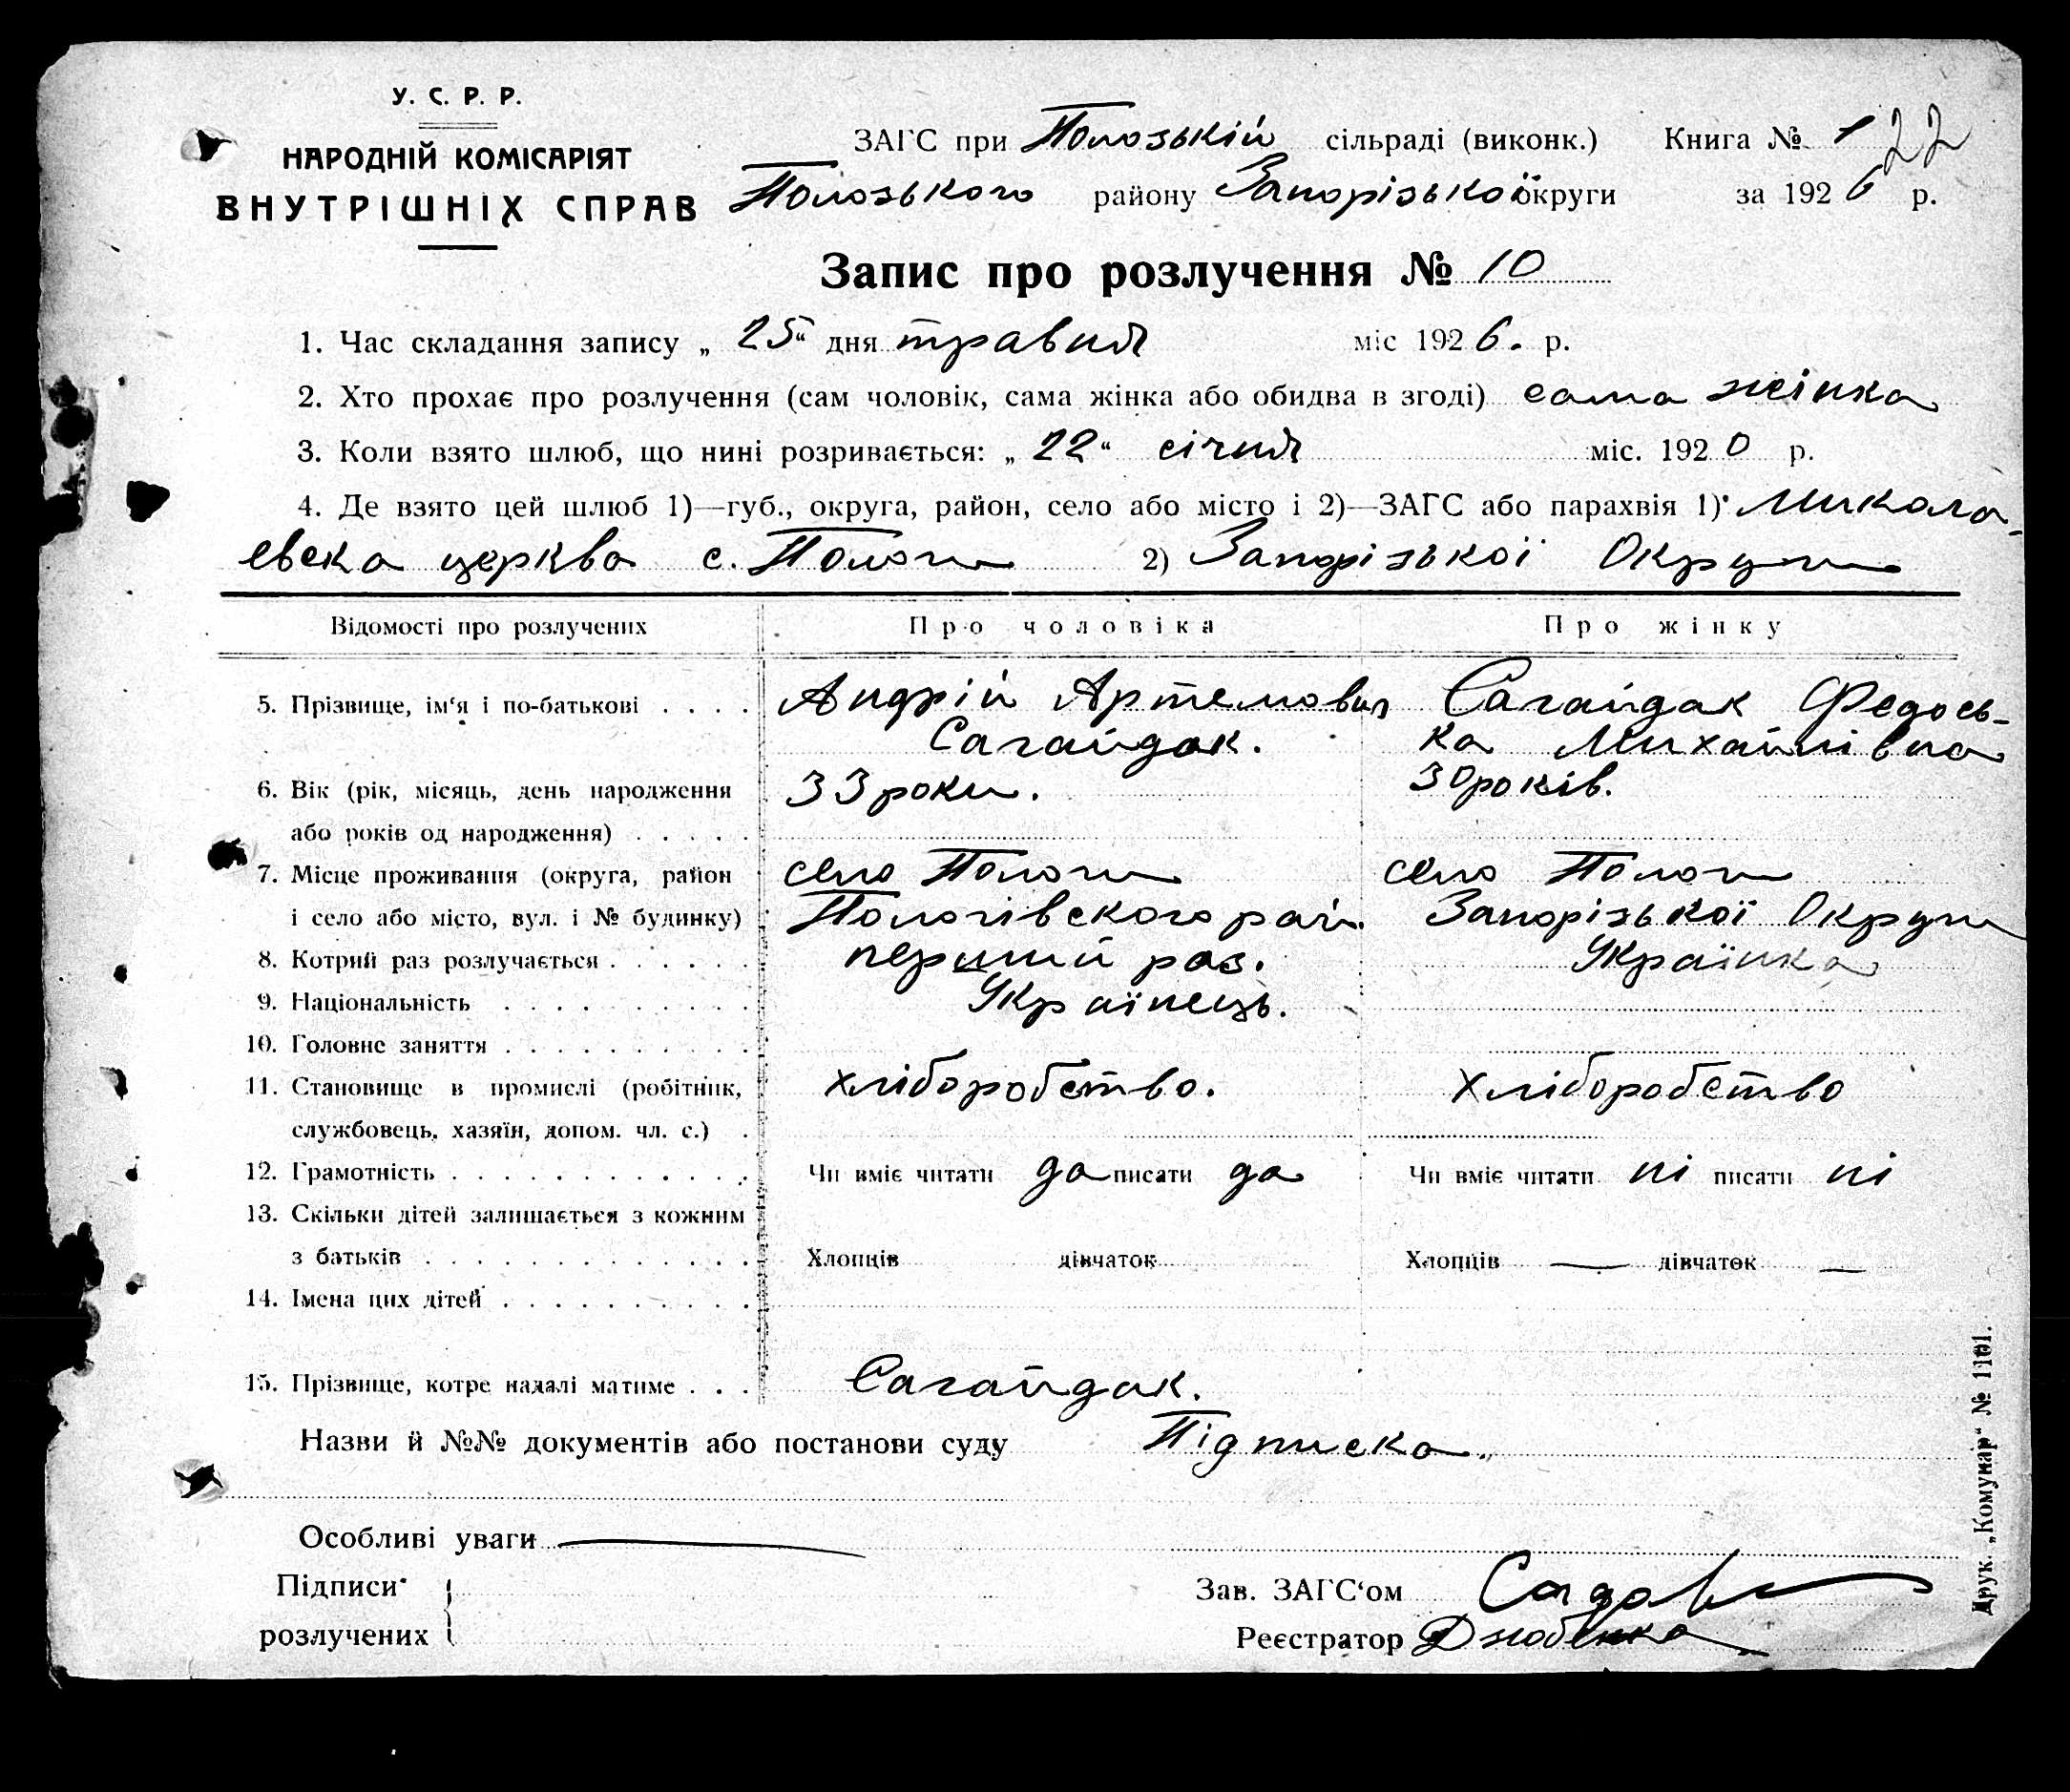 У. С. Р. Р.
НАРОДНІЙ КОМІСАРІЯТ
ВНУТРІШНІХ СПРАВ
ЗАГС при Полозькій сільраді (виконк.) Книга № 1
22
Полозького району Запорізької округи за 1926 р.
Запис про розлучення № 10
1. Час складання запису „25“ дня травня міс 1926. р.
2. Хто прохає про розлучення (сам чоловік, сама жінка або обидва в згоді) сама жінка
3. Коли взято шлюб, що нині розривається: „22“ січня міс. 1920 р.
4. Де взято цей шлюб 1)—губ., округа, район, село або місто і 2)—ЗАГС або парахвія 1) Микола-
евска церква с. Пологи 2) Запорізької Округи
Відомості про розлучених Про чоловіка Про жінку
5. Прізвище, ім‘я і по-батькові . . . . Андрій Артемович Сагайдак Федось-
Сагайдак. ка Михайлівна
6. Вік (рік, місяць, день народження 33 роки. 30 років.
або років од народження) . . . . .
7. Місце проживання (округа, район село Пологи село Пологи
і село або місто, вул. і № будинку) Пологівского рай. Запорізької Округи
8. Котрий раз розлучається . . . . . . перший раз. Українка
9. Національність . . . . . . . . . . Українець.
10. Головне заняття . . . . . . . . . .
11. Становище в промислі (робітник, хліборобство. хліборобство
службовець, хазяїн, допом. чл. с.) .
12. Грамотність . . . . . . . . . . . . Чи вміє читати да писати да Чи вміє читати ні писати ні
13. Скільки дітей залишається з кожним
з батьків . . . . . . . . . . . . . Хлопців дівчаток Хлопців — дівчаток —
14. Імена цих дітей . . . . . . . . . .
15. Прізвище, котре надалі матиме . . . Сагайдак.
Назви й №№ документів або постанови суду Підписка.
Особливі уваги —
Підписи
розлучених
Зав. ЗАГС‘ом
Реєстратор
Друк. „Комунар“ № 1101.